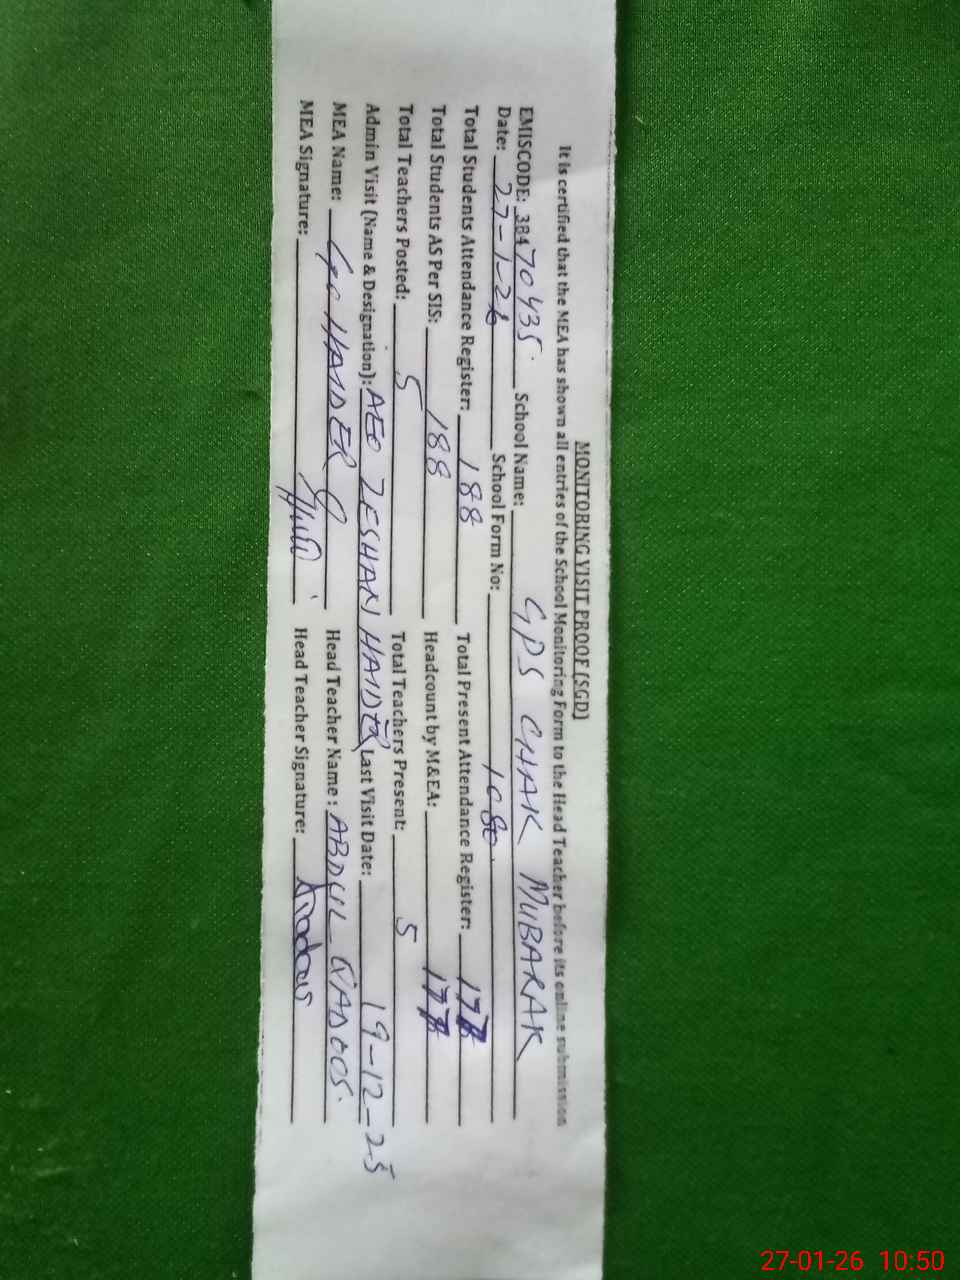 MONITORING VISIT PROOF (SGD)
It is certified that the MEA has shown all entries of the School Monitoring Form to the Head Teacher before its online submission
EMISCODE: 38470435 School Name: GPS CHAK MUBARAK
Date: 27-1-26 School Form No:
Total Students Attendance Register: 188 Total Present Attendance Register:
Total Students AS Per SIS: 188 Headcount by M&EA:
Total Teachers Posted: 5 Total Teachers Present: 5
Admin Visit (Name & Designation): AEO ZESHAN HAIDER Last Visit Date: 19-12-25
MEA Name: HAIDER Head Teacher Name: ABDUL QADOOS.
MEA Signature: Head Teacher Signature:
27-01-26 10:50